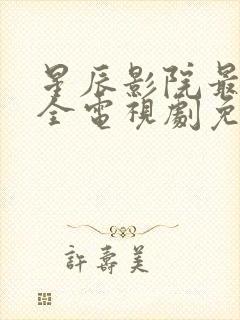 星辰影院最
全電視劇免
許壽美